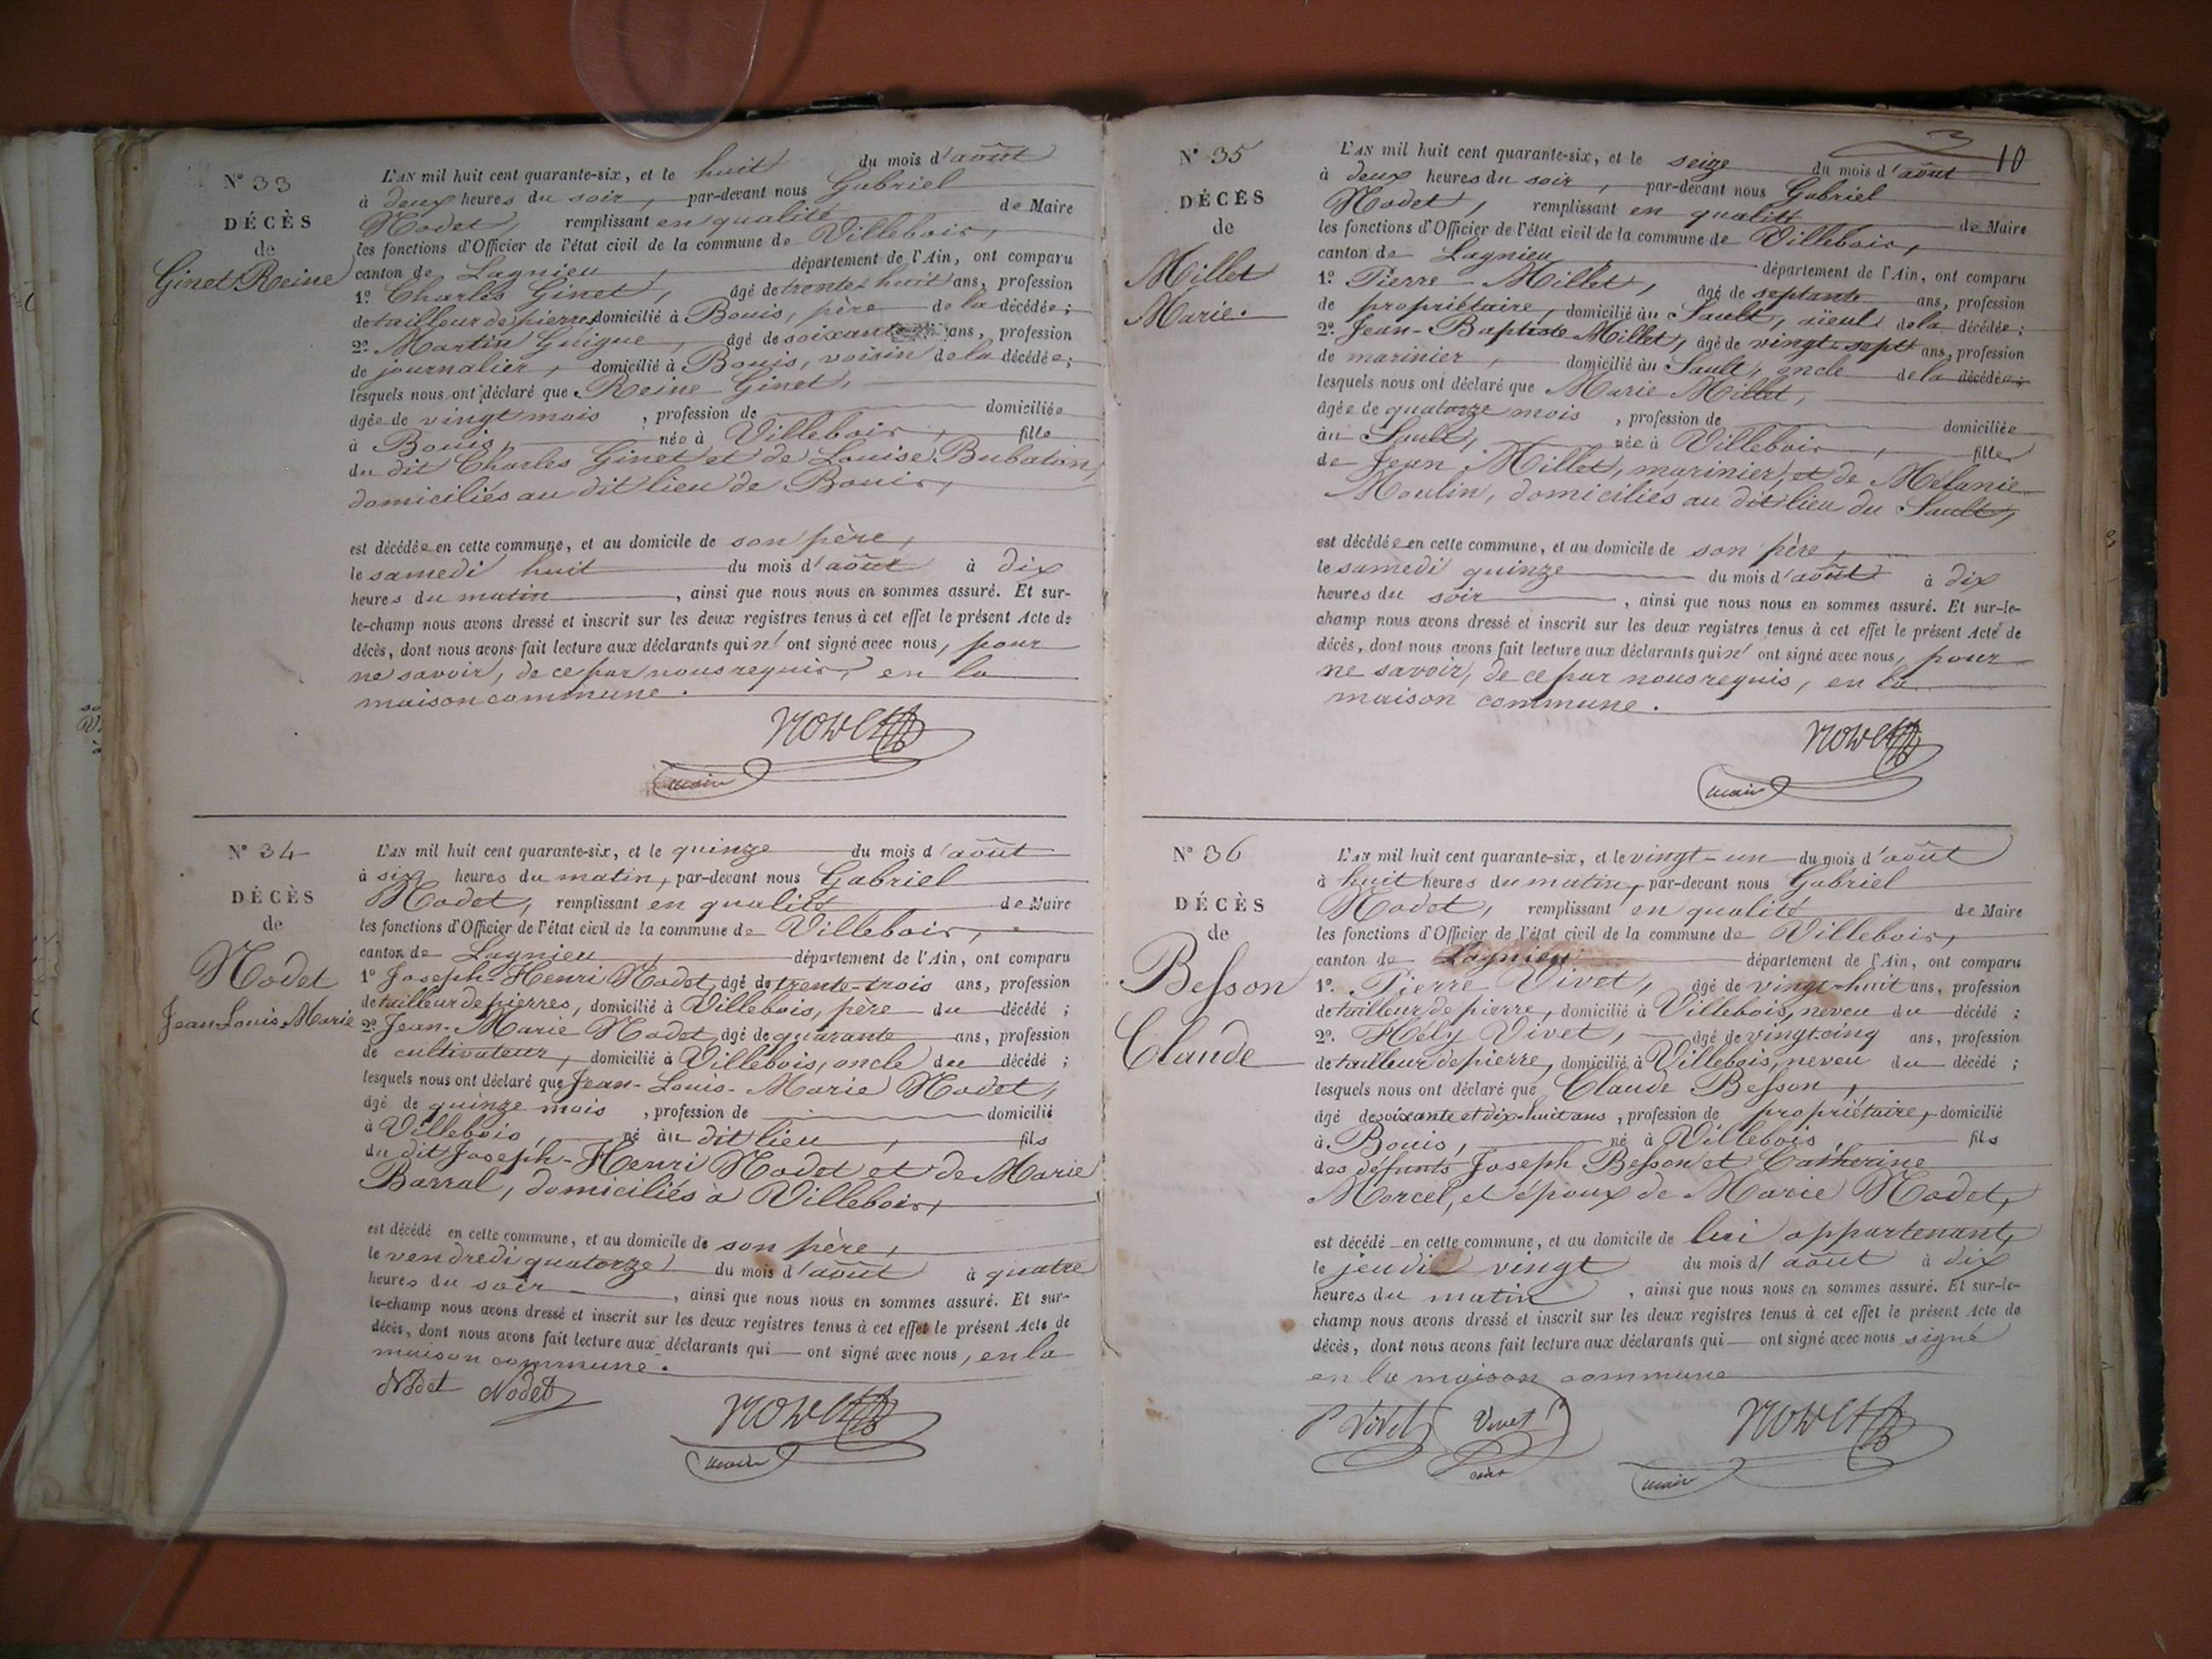 N° 33
DÉCÈS
de
Ginet Reine
L'AN mil huit cent quarante-six, et le huit du mois d'août
à deux heures du soir, par-devant nous Gabriel
Nodet, remplissant en qualité de Maire
les fonctions d'Officier de l'état civil de la commune de Villebois,
canton de Lagnieu, département de l'Ain, ont comparu
1° Charles Ginet, âgé de trente-huit ans, profession
de tailleur de pierres domicilié à Bouis, père de la décédée ;
2° Martin Guigue, âgé de soixante ans, profession
de journalier, domicilié à Bouis, voisin de la décédée ;
lesquels nous ont déclaré que Reine Ginet,
âgée de vingt mois, profession de domiciliée
à Bouis, née à Villebois, fille
du dit Charles Ginet et de Louise Bubaton,
domiciliés au dit lieu de Bouis,
est décédée en cette commune, et au domicile de son père,
le samedi huit du mois d'août à dix
heures du matin, ainsi que nous nous en sommes assuré. Et sur-
le-champ nous avons dressé et inscrit sur les deux registres tenus à cet effet le présent Acte de
décès, dont nous avons fait lecture aux déclarants qui n'ont signé avec nous, pour
ne savoir, de ce par nous requis, en la
maison commune.
Nodet
maire
N° 34
DÉCÈS
de
Nodet
Jean Louis Marie
L'AN mil huit cent quarante-six, et le quinze du mois d'août
à six heures du matin, par-devant nous Gabriel
Nodet, remplissant en qualité de Maire
les fonctions d'Officier de l'état civil de la commune de Villebois,
canton de Lagnieu, département de l'Ain, ont comparu
1° Joseph-Henri Nodet, âgé de trente-trois ans, profession
de tailleur de pierres, domicilié à Villebois, père du décédé ;
2° Jean-Marie Nodet, âgé de quarante ans, profession
de cultivateur, domicilié à Villebois, oncle du décédé ;
lesquels nous ont déclaré que Jean-Louis-Marie Nodet,
âgé de quinze mois, profession de domicilié
à Villebois, né au dit lieu, fils
du dit Joseph-Henri Nodet et de Marie
Barral, domiciliés à Villebois,
est décédé en cette commune, et au domicile de son père,
le vendredi quatorze du mois d'août à quatre
heures du soir, ainsi que nous nous en sommes assuré. Et sur-
le-champ nous avons dressé et inscrit sur les deux registres tenus à cet effet le présent Acte de
décès, dont nous avons fait lecture aux déclarants qui ont signé avec nous, en la
maison commune.
Nodet Nodet Nodet
maire
10
N° 35
DÉCÈS
de
Millet
Marie.
L'AN mil huit cent quarante-six, et le seize du mois d'août
à deux heures du soir, par-devant nous Gabriel
Nodet, remplissant en qualité de Maire
les fonctions d'Officier de l'état civil de la commune de Villebois,
canton de Lagnieu, département de l'Ain, ont comparu
1° Pierre Millet, âgé de septante ans, profession
de propriétaire, domicilié au Sault, aïeul de la décédée ;
2° Jean-Baptiste Millet, âgé de vingt-sept ans, profession
de marinier, domicilié au Sault, oncle de la décédée ;
lesquels nous ont déclaré que Marie Millet,
âgée de quatorze mois, profession de domiciliée
au Sault, née à Villebois, fille
de Jean Millet, marinier, et de Mélanie
Moulin, domiciliés au dit lieu du Sault,
est décédée en cette commune, et au domicile de son père,
le samedi quinze du mois d'août à dix
heures du soir, ainsi que nous nous en sommes assuré. Et sur-le-
champ nous avons dressé et inscrit sur les deux registres tenus à cet effet le présent Acte de
décès, dont nous avons fait lecture aux déclarants qui n'ont signé avec nous, pour
ne savoir, de ce par nous requis, en la
maison commune.
Nodet
maire
N° 36
DÉCÈS
de
Besson
Claude
L'AN mil huit cent quarante-six, et le vingt-un du mois d'août
à huit heures du matin, par-devant nous Gabriel
Nodet, remplissant en qualité de Maire
les fonctions d'Officier de l'état civil de la commune de Villebois,
canton de Lagnieu département de l'Ain, ont comparu
1° Pierre Vivet, âgé de vingt-huit ans, profession
de tailleur de pierre, domicilié à Villebois, neveu du décédé :
2° Hély Vivet, âgé de vingt-cinq ans, profession
de tailleur de pierre, domicilié à Villebois, neveu du décédé ;
lesquels nous ont déclaré que Claude Besson,
âgé de soixante et dix-huit ans, profession de propriétaire, domicilié
à Bouis, né à Villebois, fils
des défunts Joseph Besson et Catherine
Marcel, et époux de Marie Nodet,
est décédé en cette commune, et au domicile de lui appartenant,
le jeudi vingt du mois d'août à dix
heures du matin, ainsi que nous nous en sommes assuré. Et sur-le-
champ nous avons dressé et inscrit sur les deux registres tenus à cet effet le présent Acte de
décès, dont nous avons fait lecture aux déclarants qui ont signé avec nous signé
en la maison commune
P Vivet Vivet Nodet
cadet maire